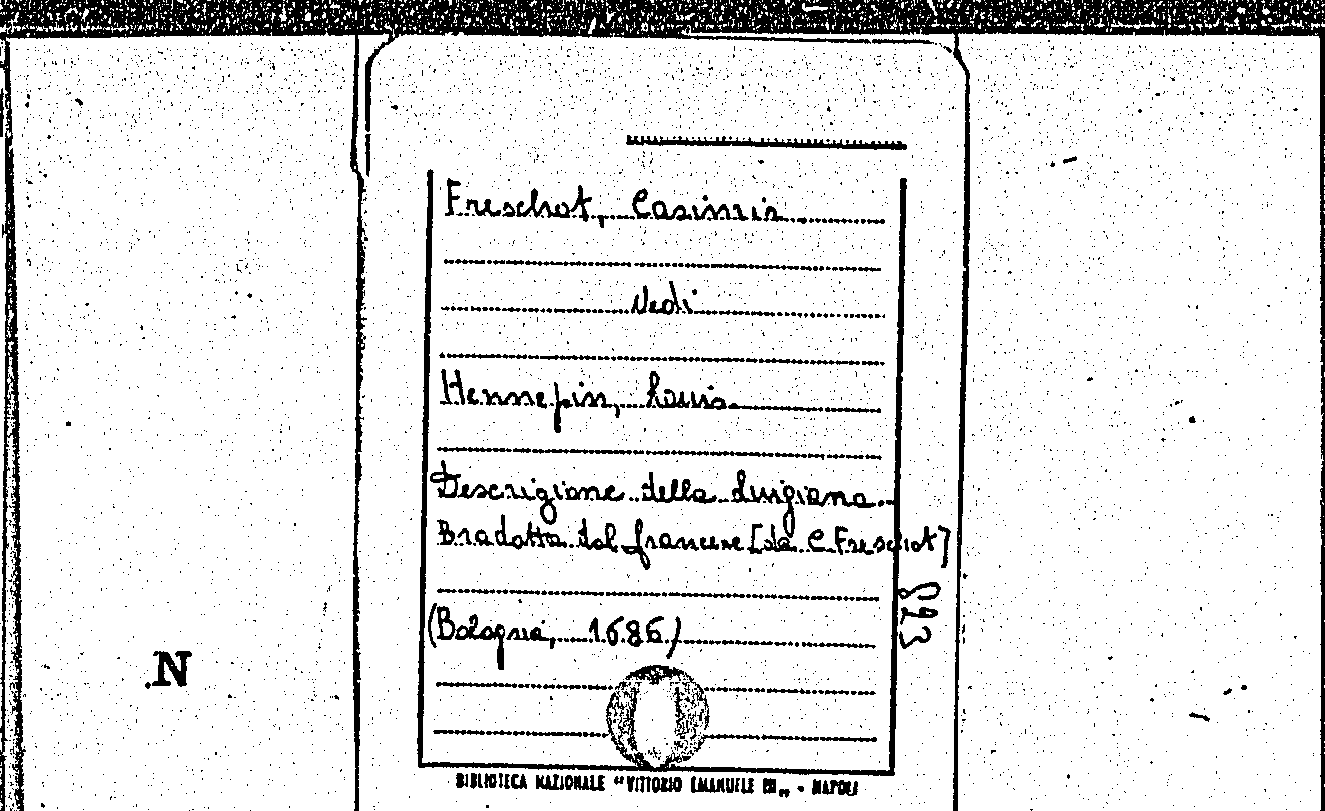 Freschot, Casimir
Vedi
Hennepin, Louis.
Descrizione della Luigiana.
Tradotta dal francese [da C. Freschot]
(Bologna, 1686)
893
N
BIBLIOTECA NAZIONALE "VITTORIO EMANUELE III„ - NAPOLI